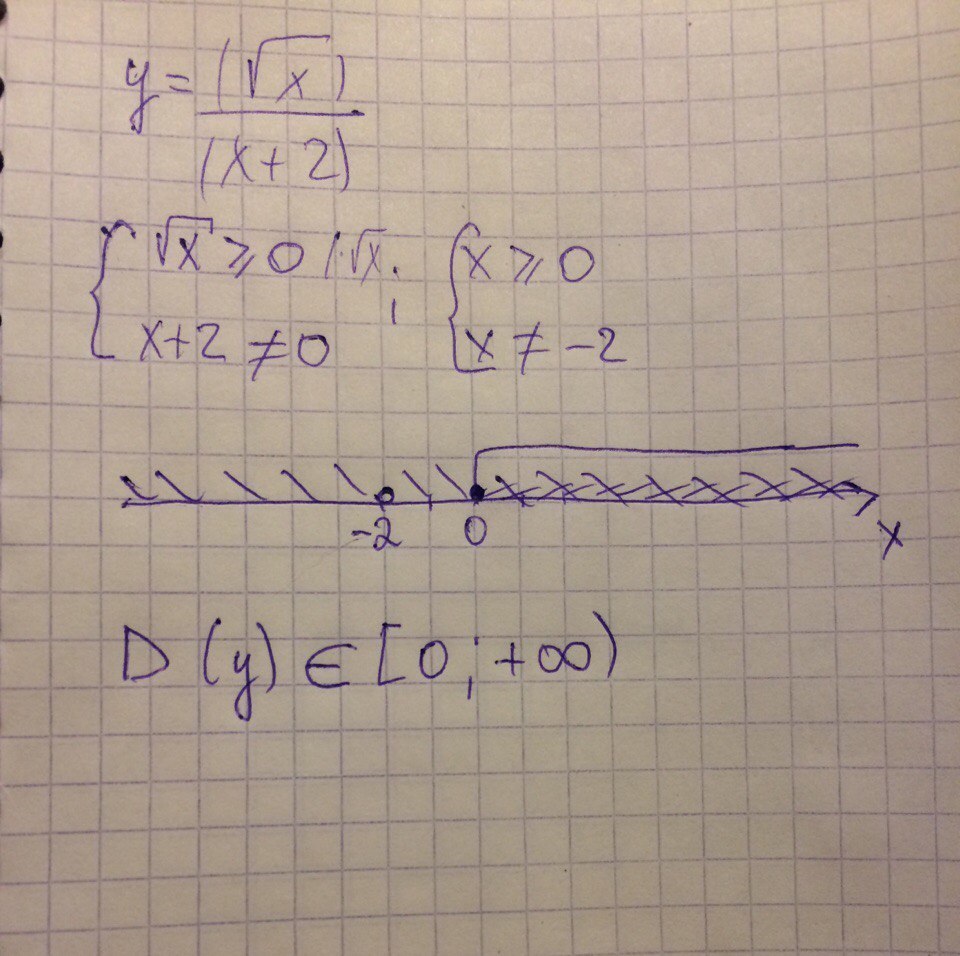 y = (√x) / (x + 2)
{ √x ⩾ 0 / · √x ; { x ⩾ 0
x + 2 ≠ 0 x ≠ -2
-2 0 x
D (y) ∈ [0 ; +∞)